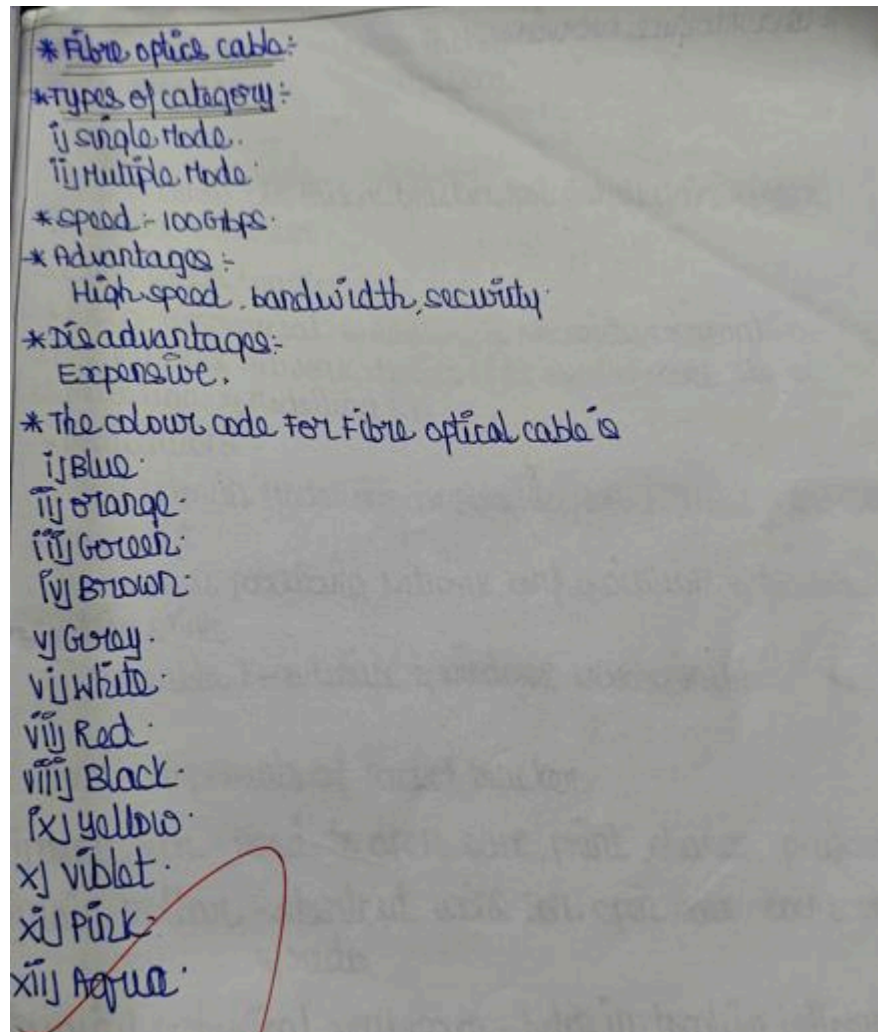 * Fibre optics cable:-
* Types of category:-
i) single Mode.
ii) Multiple Mode.
* Speed:- 100Gbps.
* Advantages:-
High speed, bandwidth, security.
* Disadvantages:-
Expensive.
* The colour code For Fibre optical cable is
i) Blue.
ii) orange.
iii) Green.
iv) Brown.
v) Gray.
vi) White.
vii) Red.
viii) Black.
ix) yellow.
x) violet.
xi) Pink.
xii) Aqua.